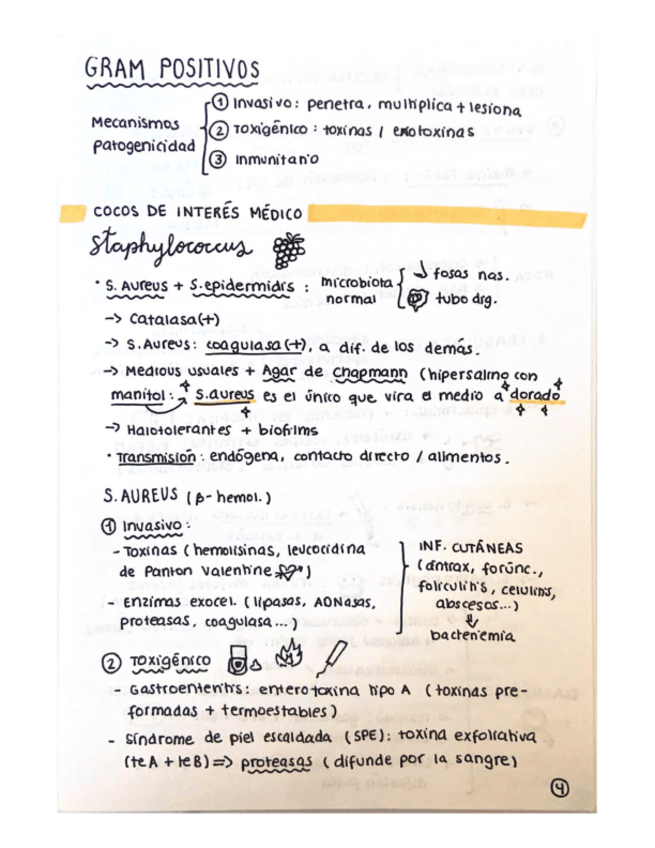 GRAM POSITIVOS
Mecanismos patogenicidad
① Invasivo: penetra, multiplica + lesiona
② Toxigénico: toxinas / exotoxinas
③ Inmunitario
COCOS DE INTERÉS MÉDICO
Staphylococcus
· S. Aureus + S. epidermidis : microbiota normal
fosas nas.
tubo dig.
-> Catalasa (+)
-> S. Aureus: coagulasa (+), a dif. de los demás.
-> Medious usuales + Agar de Chapmann (hipersalino con
manitol: S. aureus es el único que vira el medio a dorado
-> Halotolerantes + biofilms
· Transmisión: endógena, contacto directo / alimentos.
S. AUREUS (β- hemol.)
① Invasivo:
- Toxinas (hemolisinas, leucocidina
de Panton Valentine)
- Enzimas exocel. (lipasas, ADNasas,
proteasas, coagulasa...)
INF. CUTÁNEAS
(ántrax, forúnc.,
foliculitis, celulitis,
abscesos...)
⇓
bacteriemia
② Toxigénico
- Gastroenteritis: enterotoxina tipo A (toxinas pre-
formadas + termoestables)
- Síndrome de piel escaldada (SPE): toxina exfoliativa
(teA + teB) => proteasas (difunde por la sangre)
4